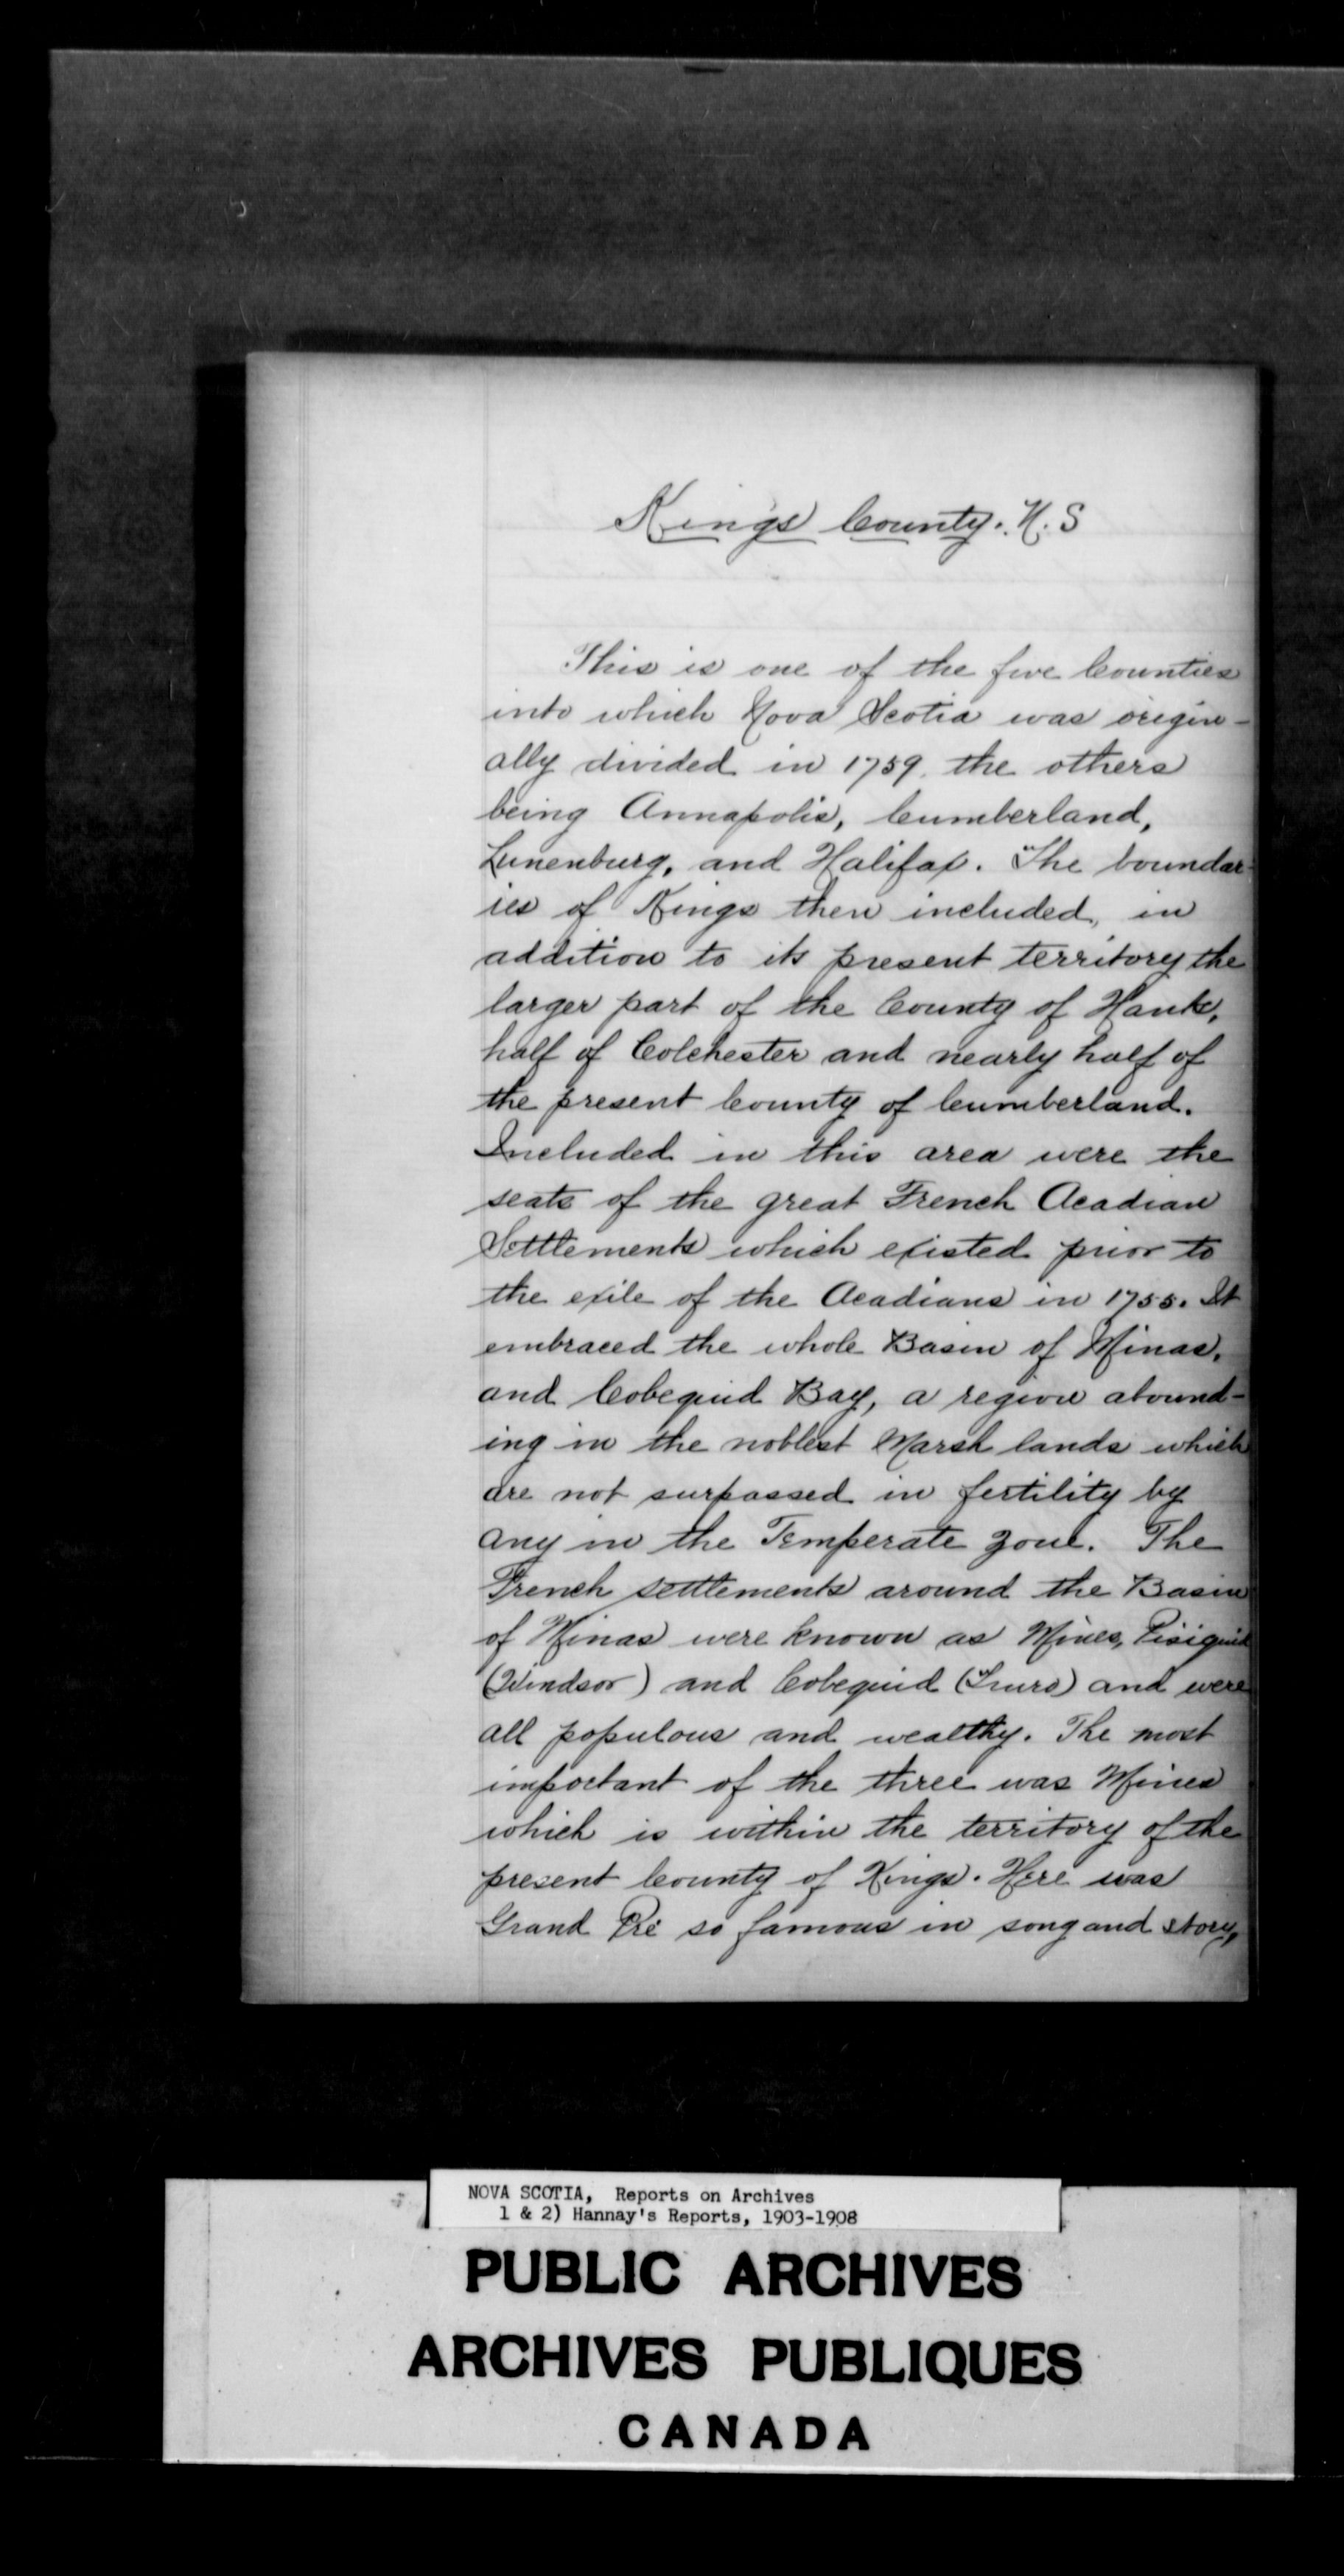 Kings County. N. S
This is one of the five Counties
into which Nova Scotia was origin-
ally divided in 1759. the others
being Annapolis, Cumberland,
Lunenburg, and Halifax. The boundar-
ies of Kings then included, in
addition to its present territory the
larger part of the County of Hants,
half of Colchester and nearly half of
the present County of Cumberland.
Included in this area were the
seats of the great French Acadian
Settlements which existed prior to
the exile of the Acadians in 1755. It
embraced the whole Basin of Minas,
and Cobequid Bay, a region abound-
ing in the noblest Marsh lands which
are not surpassed in fertility by
any in the Temperate zone. The
French settlements around the Basin
of Minas were known as Mines, Pisiquid
(Windsor) and Cobequid (Truro) and were
all populous and wealthy. The most
important of the three was Mines
which is within the territory of the
present County of Kings. Here was
Grand Pré so famous in song and story,
NOVA SCOTIA, Reports on Archives
1 & 2) Hannay's Reports, 1903-1908
PUBLIC ARCHIVES
ARCHIVES PUBLIQUES
CANADA